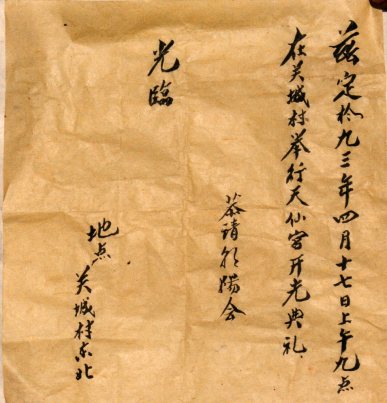 兹定於九三年四月十七日上午九点
在关城村举行天仙宫开光典礼
恭请 会
光臨
地点
关城村东北